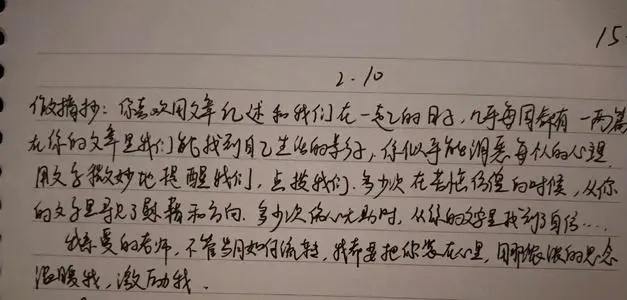 15
2.10
作文摘抄：你喜欢用文章记述和我们在一起的日子，几乎每周都有一两篇
在你的文章里我们能找到自己生活的影子，你似乎能洞悉每人的心理
用文字微妙地提醒我们，点拨我们.多少次在苦恼彷徨的时候，从你
的文字里寻见了慰藉和方向.多少次信心大助时，从你的文字里找到了自信....
亲爱的老师，不管岁月如何流转，我都要把你装在心里，用那浓浓的思念
温暖我，激励我.